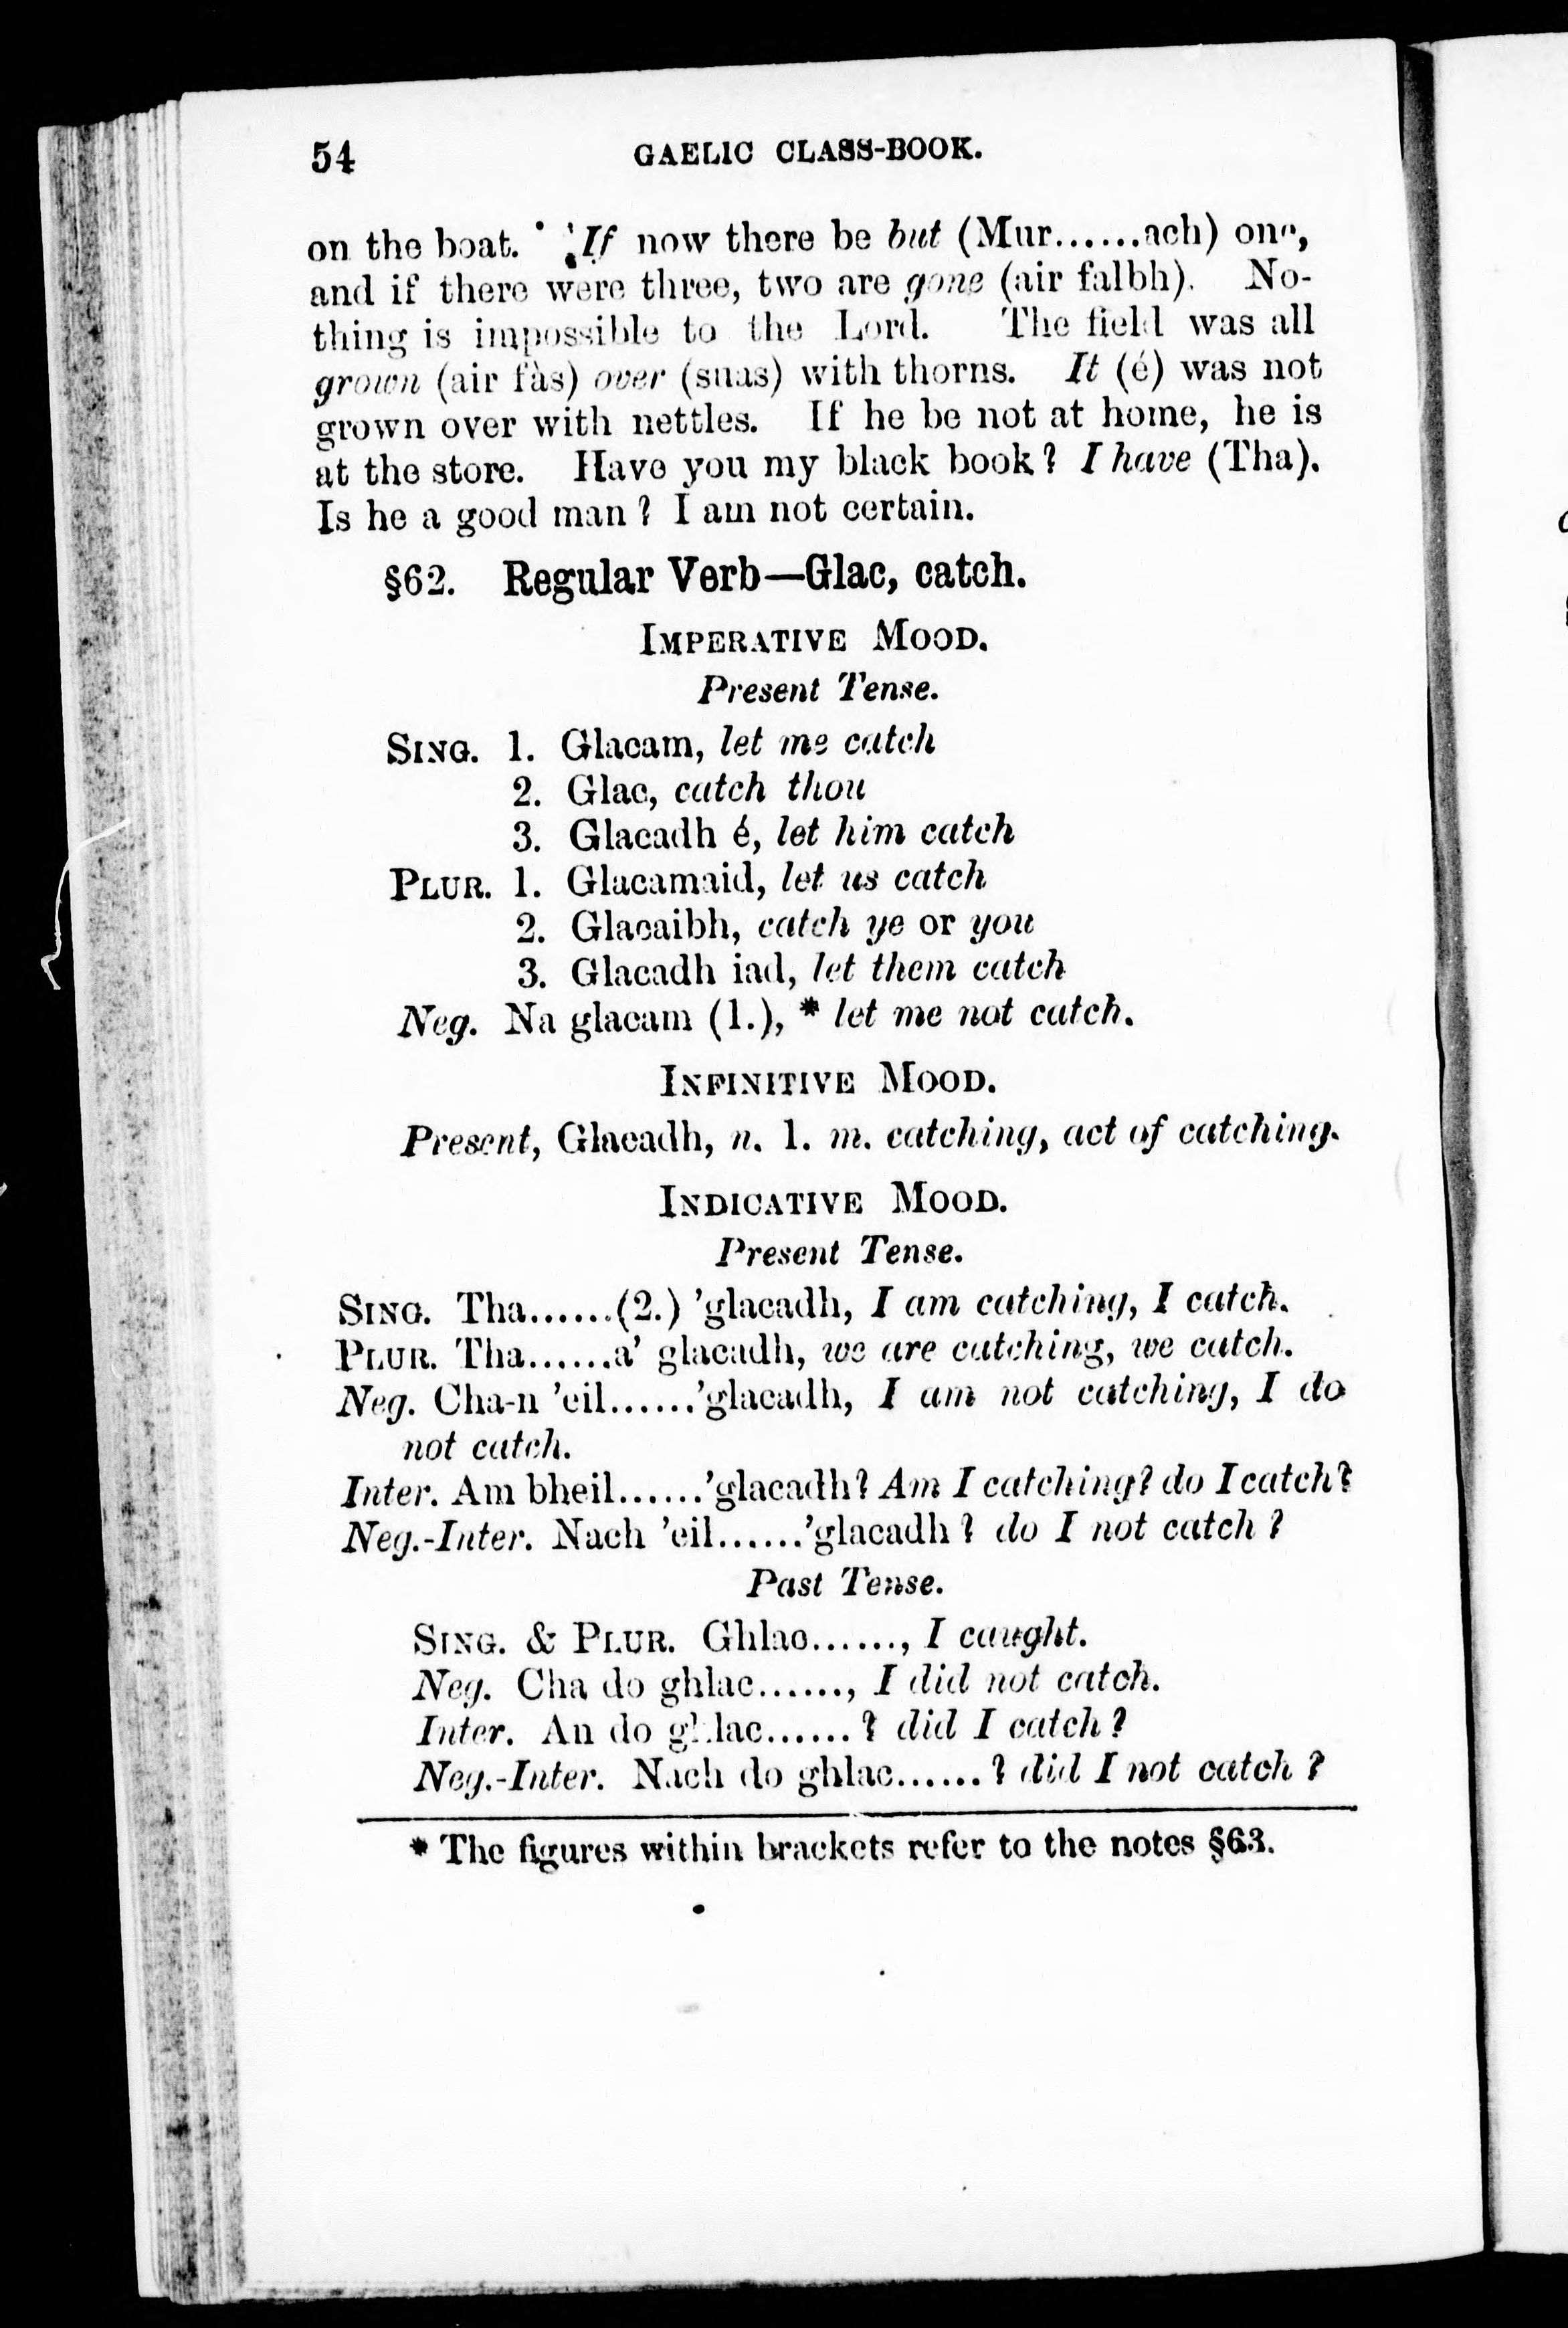 54 GAELIC CLASS-BOOK.
on the boat. If now there be but (Mur......ach) one,
and if there were three, two are gone (air falbh). No-
thing is impossible to the Lord. The field was all
grown (air fàs) over (suas) with thorns. It (é) was not
grown over with nettles. If he be not at home, he is
at the store. Have you my black book? I have (Tha).
Is he a good man? I am not certain.
§62. Regular Verb—Glac, catch.
IMPERATIVE MOOD.
Present Tense.
SING. 1. Glacam, let me catch
2. Glac, catch thou
3. Glacadh é, let him catch
PLUR. 1. Glacamaid, let us catch
2. Glacaibh, catch ye or you
3. Glacadh iad, let them catch
Neg. Na glacam (1.), * let me not catch.
INFINITIVE MOOD.
Present, Glacadh, n. 1. m. catching, act of catching.
INDICATIVE MOOD.
Present Tense.
SING. Tha......(2.) 'glacadh, I am catching, I catch.
PLUR. Tha......a' glacadh, we are catching, we catch.
Neg. Cha-n 'eil......'glacadh, I am not catching, I do
not catch.
Inter. Am bheil......'glacadh? Am I catching? do I catch?
Neg.-Inter. Nach 'eil......'glacadh? do I not catch?
Past Tense.
SING. & PLUR. Ghlac......, I caught.
Neg. Cha do ghlac......, I did not catch.
Inter. An do ghlac......? did I catch?
Neg.-Inter. Nach do ghlac......? did I not catch?
* The figures within brackets refer to the notes §63.